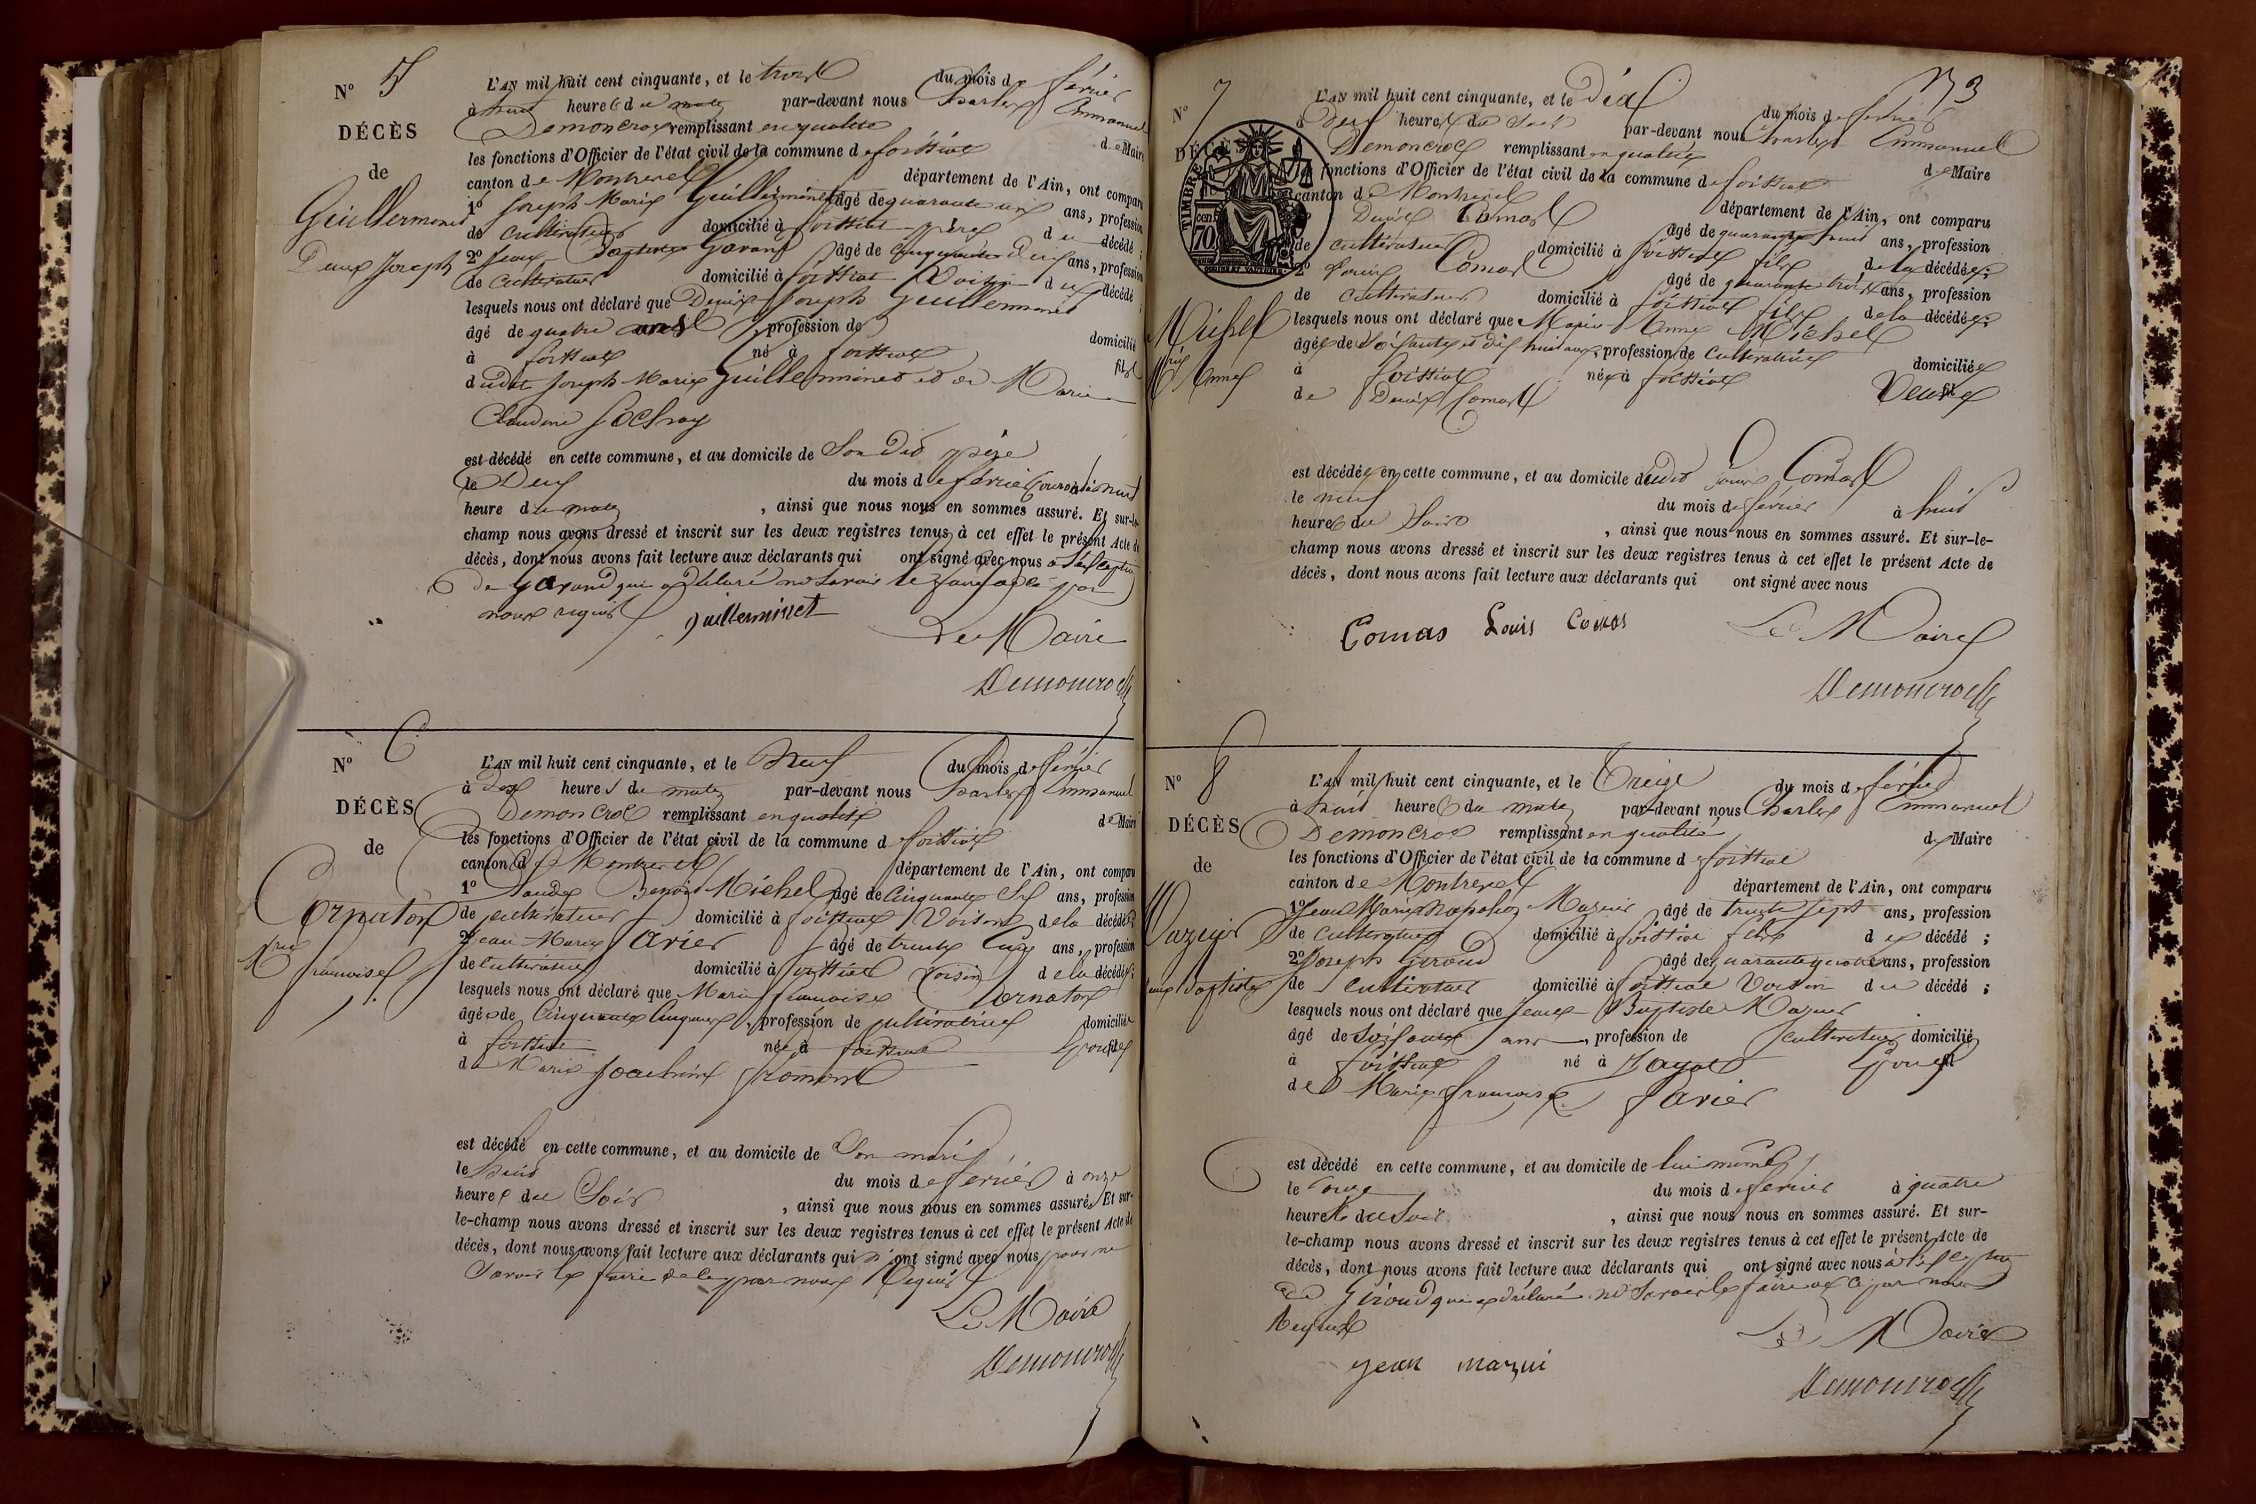 N° 5
DÉCÈS
de
Guillermenet
Denis Joseph
L'AN mil huit cent cinquante, et le trois du mois de février
à huit heures du matin par-devant nous Charles Emmanuel
Demoncroc remplissant en qualité de Maire
les fonctions d'Officier de l'état civil de la commune de foissiat
canton de Montrevel département de l'Ain, ont comparu
1° Joseph Marie Guilleminet âgé de quarante ans, profession
de cultivateur domicilié à foissiat père du décédé ;
2° Jean Baptiste Gavand âgé de cinquante ans, profession
de cultivateur domicilié à foissiat Voisin du décédé ;
lesquels nous ont déclaré que Denis Joseph Guillermenet
âgé de quatre ans profession de domicilié
à foissiat né à foissiat fils
dudit Joseph Marie Guilleminet et de Marie
Claudine
est décédé en cette commune, et au domicile de Son dit père
le Deux du mois de février courant à huit
heure du matin, ainsi que nous nous en sommes assuré. Et sur-le-
champ nous avons dressé et inscrit sur les deux registres tenus à cet effet le présent Acte de
décès, dont nous avons fait lecture aux déclarants qui ont signé avec nous à l'exception
de Gavand qui a déclaré ne savoir le faire de ce par
nous requis
guilleminet
Le Maire
Demoncroc
N° 6
DÉCÈS
de
Cornaton
Mrie françoise
L'AN mil huit cent cinquante, et le Neuf du mois de février
à Dix heures du matin par-devant nous Charles Emmanuel
Demoncroc remplissant en qualité de Maire
les fonctions d'Officier de l'état civil de la commune de foissiat
canton de Montrevel département de l'Ain, ont comparu
1° Claude Benoit Michel âgé de Cinquante Six ans, profession
de cultivateur domicilié à foissiat Voisin de la décédée ;
2° Jean Marie favier âgé de trente ans, profession
de Cultivateur domicilié à foissiat Voisin de la décédée ;
lesquels nous ont déclaré que Marie françoise Cornaton
âgée de Cinquante Cinq ans, profession de cultivatrice domiciliée
à foissiat née à foissiat Epouse
de Marie Joachim froment
est décédé en cette commune, et au domicile de Son mari
le huit du mois de février à onze
heures du Soir, ainsi que nous nous en sommes assuré. Et sur-
le-champ nous avons dressé et inscrit sur les deux registres tenus à cet effet le présent Acte de
décès, dont nous avons fait lecture aux déclarants qui n'ont signé avec nous pour ne
Savoir le faire de ce par nous Requis
Le Maire
Demoncroc
N° 7
33
DÉCÈS
TIMBRE
70
Michel
Mrie Anne
L'AN mil huit cent cinquante, et le dix du mois de février
à deux heures du Soir par-devant nous Charles Emmanuel
Demoncroc remplissant en qualité de Maire
fonctions d'Officier de l'état civil de la commune de foissiat
canton de Montrevel département de l'Ain, ont comparu
Denis Comas âgé de quarante huit ans, profession
de cultivateur domicilié à foissiat fils de la décédée ;
2° Louis Comas âgé de quarante trois ans, profession
de cultivateur domicilié à foissiat fils de la décédée ;
lesquels nous ont déclaré que Marie Anne Michel
âgée de Soixante et dix huit ans, profession de Cultivatrice domiciliée
à foissiat née à foissiat Veuve
de Denis Comas
est décédée en cette commune, et au domicile dudit Louis Comas
le neuf du mois de février à huit
heures du Soir, ainsi que nous nous en sommes assuré. Et sur-le-
champ nous avons dressé et inscrit sur les deux registres tenus à cet effet le présent Acte de
décès, dont nous avons fait lecture aux déclarants qui ont signé avec nous
Comas Louis Comas
Le Maire
Demoncroc
N° 8
DÉCÈS
de
Mazuir
Jean Baptiste
L'AN mil huit cent cinquante, et le Treize du mois de février
à huit heures du matin par-devant nous Charles Emmanuel
Demoncroc remplissant en qualité de Maire
les fonctions d'Officier de l'état civil de la commune de foissiat
canton de Montrevel département de l'Ain, ont comparu
1° Jean Marie Napoléon Mazuir âgé de trente sept ans, profession
de Cultivateur domicilié à foissiat fils du décédé ;
2° Joseph Giroud âgé de quarante quatre ans, profession
de cultivateur domicilié à foissiat Voisin du décédé ;
lesquels nous ont déclaré que Jean Baptiste Mazuir
âgé de Soixante ans, profession de cultivateur domicilié
à foissiat né à Jayat Epoux
de Marie françoise favier
est décédé en cette commune, et au domicile de lui même
le douze du mois de février à quatre
heures du Soir, ainsi que nous nous en sommes assuré. Et sur-
le-champ nous avons dressé et inscrit sur les deux registres tenus à cet effet le présent Acte de
décès, dont nous avons fait lecture aux déclarants qui ont signé avec nous à l'exception
de Giroud qui a déclaré ne Savoir le faire de ce par nous
Requis
Le Maire
jean mazui
Demoncroc